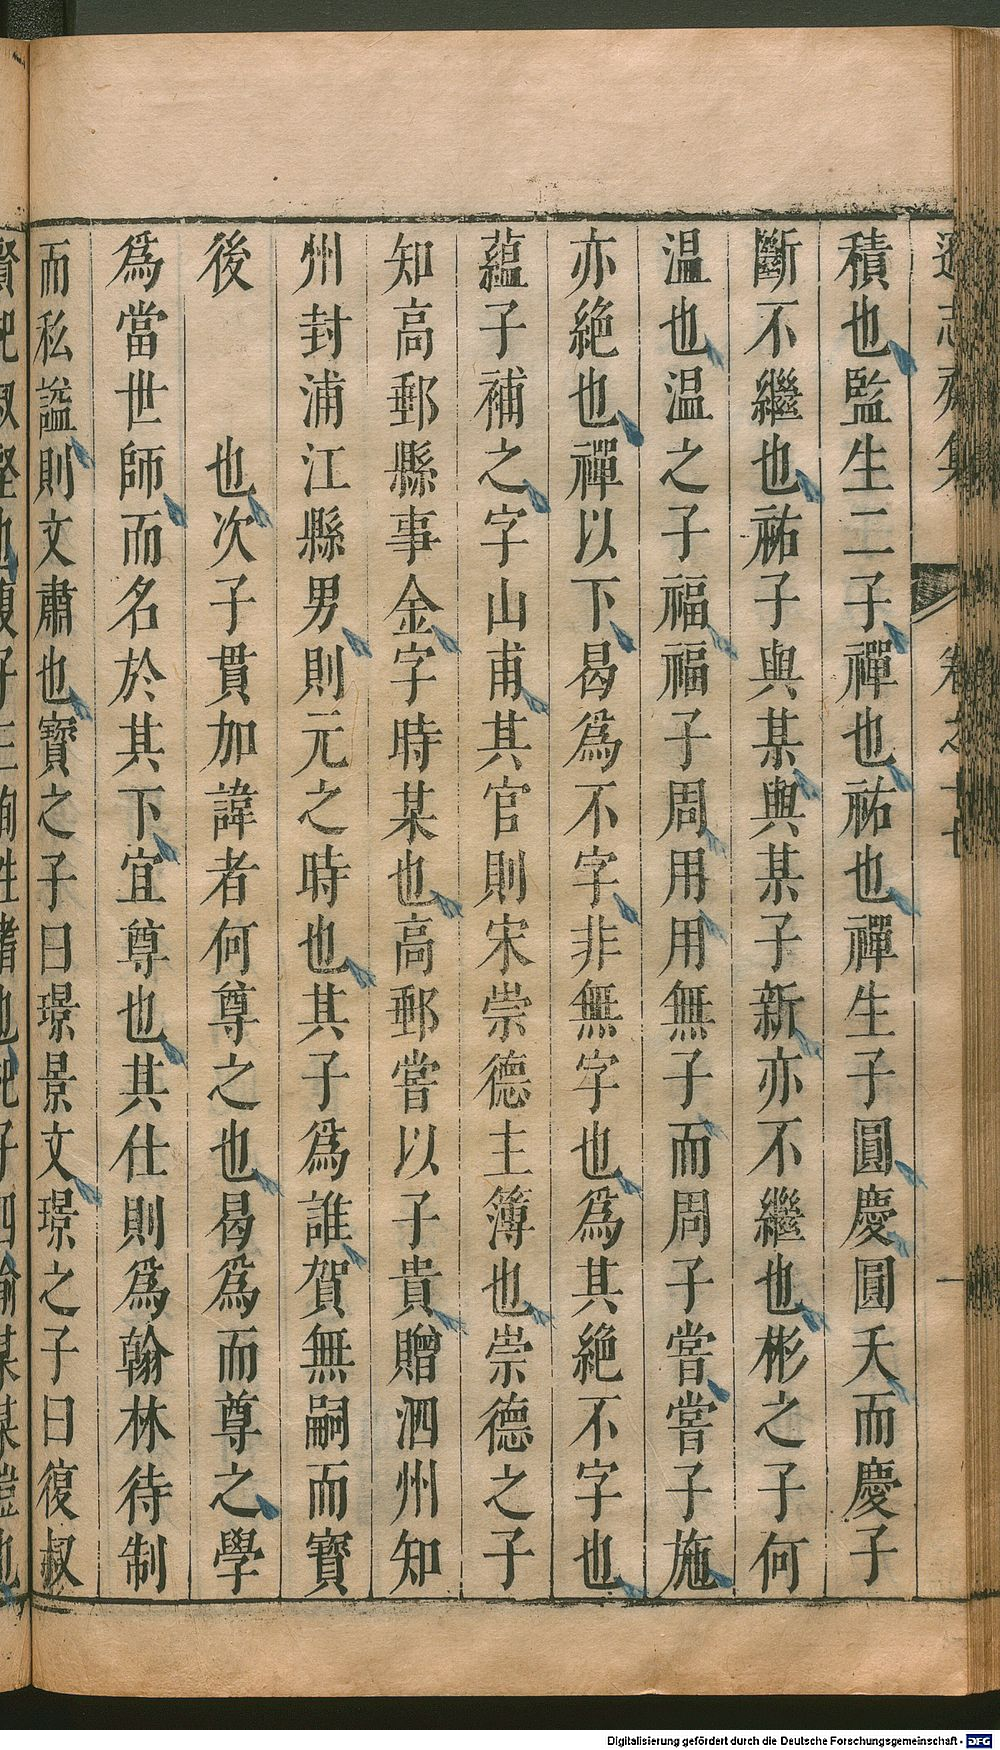 遜志齋集 卷之十七 一
積也監生二子禪也祐也禪生子圓慶圓夭而慶子
斷不繼也祐子與某與某子新亦不繼也彬之子何
温也温之子福福子周用用無子而周子嘗嘗子施
亦絶也禪以下曷爲不字非無字也爲其絶不字也
蘊子補之字山甫其官則宋崇德主簿也崇德之子
知高郵縣事金字時某也高郵嘗以子貴贈泗州知
州封浦江縣男則元之時也其子爲誰賀無嗣而寶
後 也次子貫加諱者何尊之也曷爲而尊之學
爲當世師而名於其下宜尊也其仕則爲翰林待制
而私謚則文肅也寶之子曰璟景文璟之子曰復叔
Digitalisierung gefördert durch die Deutsche Forschungsgemeinschaft - DFG